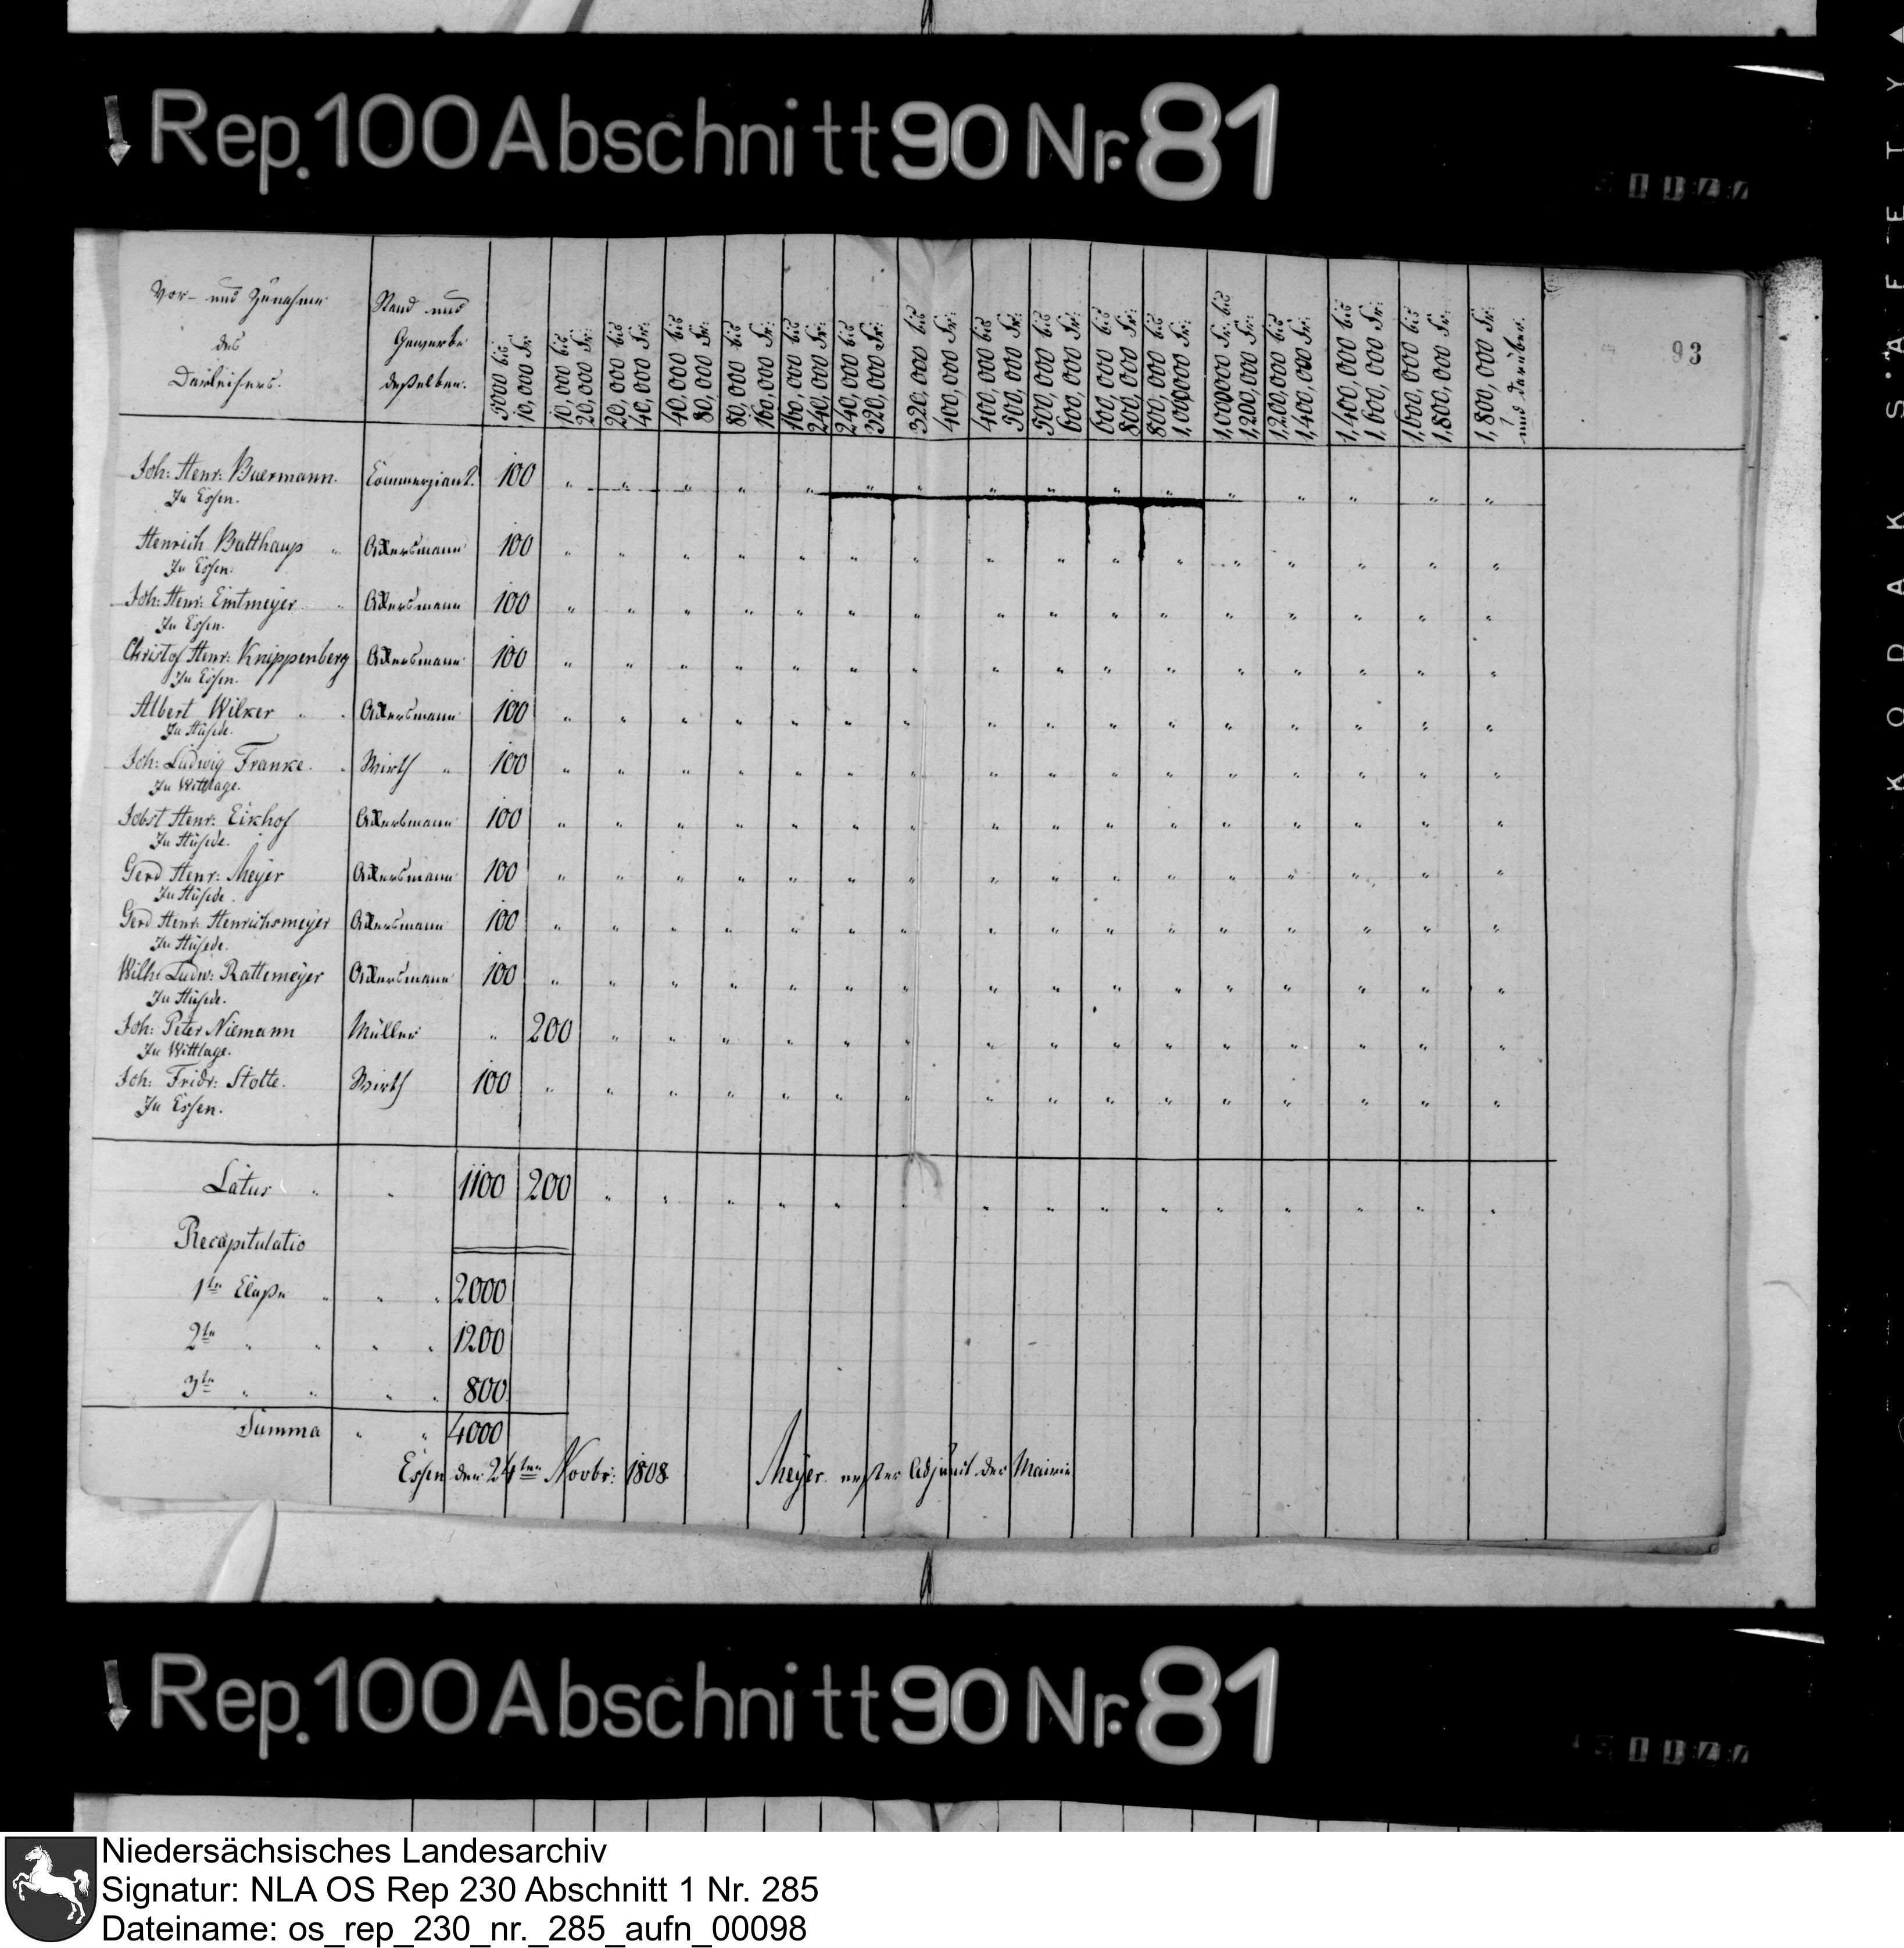 Rep. 100 Abschnitt 90 Nr. 81
93
Vor- und Zunahme
des
Darleihers.
Stand und
Gewerbe
deßelben.
5000 bis
10,000 Fr:
10,000 bis
20,000 Fr:
20,000 bis
40,000 Fr:
40,000 bis
80,000 Fr:
80,000 bis
160,000 Fr:
160,000 bis
240,000 Fr:
240,000 bis
320,000 Fr:
320,000 bis
400,000 Fr:
400,000 bis
500,000 Fr:
500,000 bis
600,000 Fr:
600,000 bis
800,000 Fr:
800,000 bis
1,000,000 Fr:
1,000,000 Fr. bis
1,200,000 Fr:
1,200,000 bis
1,400,000 Fr:
1,400,000 bis
1,600,000 Fr:
1,600,000 bis
1,800,000 Fr:
1,800,000 Fr:
und darüber.
Joh: Henr: Buermann. Commerziant. 100
In Essen.
Henrich Batthaup Ackersmann 100
In Essen.
Joh: Henr: Eintmeyer Ackersmann 100
In Essen.
Christof Henr: Knippenberg Ackersmann 100
In Essen.
Albert Wilker Ackersmann 100
In Hüsede.
Joh: Ludwig Franke. Wirth 100
In Wittlage.
Jobst Henr: Eikhof Ackersmann 100
In Hüsede.
Gerd Henr: Meyer Ackersmann 100
In Hüsede.
Gerd Henr: Henrichsmeyer Ackersmann 100
In Hüsede.
Wilh: Ludw: Rattemeyer Ackersmann 100
In Hüsede.
Joh: Peter Niemann Müller " 200
In Wittlage.
Joh: Fridr: Stolte. Wirth 100
In Essen.
Latus 1100 200
Recapitulatio
1te Claße 2000
2te " 1200
3te " 800
Summa 4000
Essen den 24ten Novbr: 1808
Meyer erster Adjunct der Mairie
Rep. 100 Abschnitt 90 Nr. 81
KODAK SAFETY
Niedersächsisches Landesarchiv
Signatur: NLA OS Rep 230 Abschnitt 1 Nr. 285
Dateiname: os_rep_230_nr._285_aufn_00098